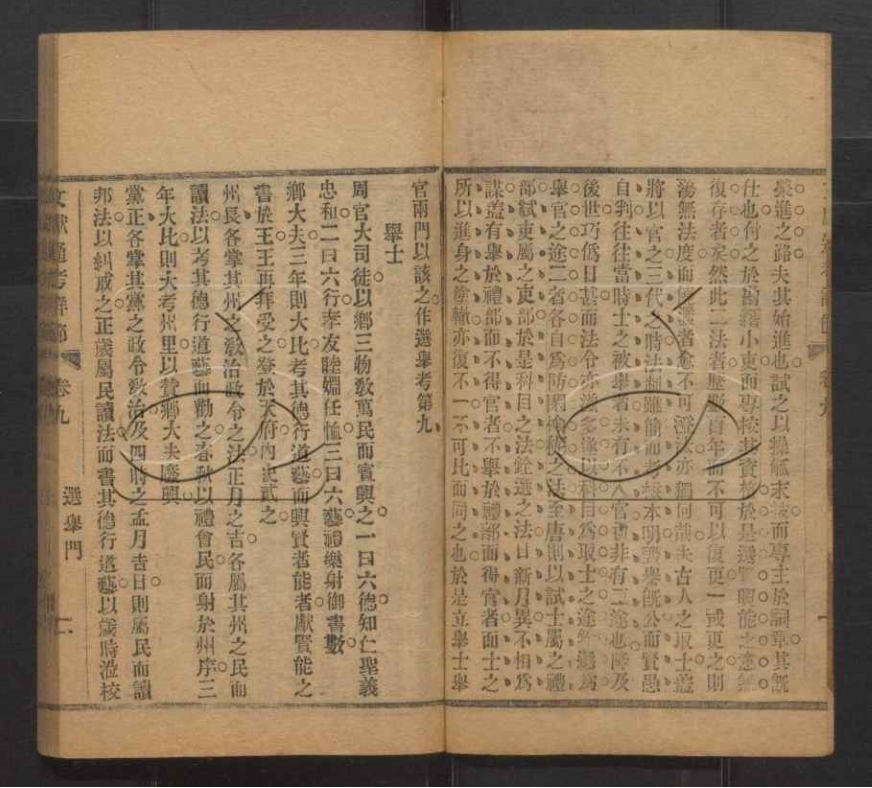 榮進之路夫其始進也試之以操觚末技而專主於詞章其旣
仕也付之於胥徒小吏而專校其資格於是選賢與能之意無
復存者矣然此二法者歷數百年而不可以復更一或更之則
蕩無法度而僥濫者愈不可澄汰亦獨何哉夫古人之取士蓋
將以官之三代之時法制雖簡而考核本明毀譽旣公而賢愚
自判往往當時士之被舉者未有不入官初非有二途也降及
後世巧僞日甚而法令亦滋多遂以科目爲取士之途銓選爲
舉官之途二者各自爲防閑檢柅之法至唐則以試士屬之禮
部試吏屬之吏部於是科目之法銓選之法日新月異不相爲
謀蓋有舉於禮部而不得官者不舉於禮部而得官者而士之
所以進身之塗轍亦復不一不可比而同之也於是立舉士舉
官兩門以該之作選舉考第九
舉士
周官大司徒以鄉三物敎萬民而賓興之一曰六德知仁聖義
忠和二曰六行孝友睦婣任恤三曰六藝禮樂射御書數
鄉大夫三年則大比考其德行道藝而興賢者能者獻賢能之
書於王王再拜受之登於天府內史貳之
州長各掌其州之敎治政令之法正月之吉各屬其州之民而
讀法以考其德行道藝而勸之春秋以禮會民而射於州序三
年大比則大考州里以贊鄉大夫廢興
黨正各掌其黨之政令敎治及四時之孟月吉日則屬民而讀
邦法以糾戒之正歲屬民讀法而書其德行道藝以歲時涖校
文獻通考詳節
卷九
選舉門